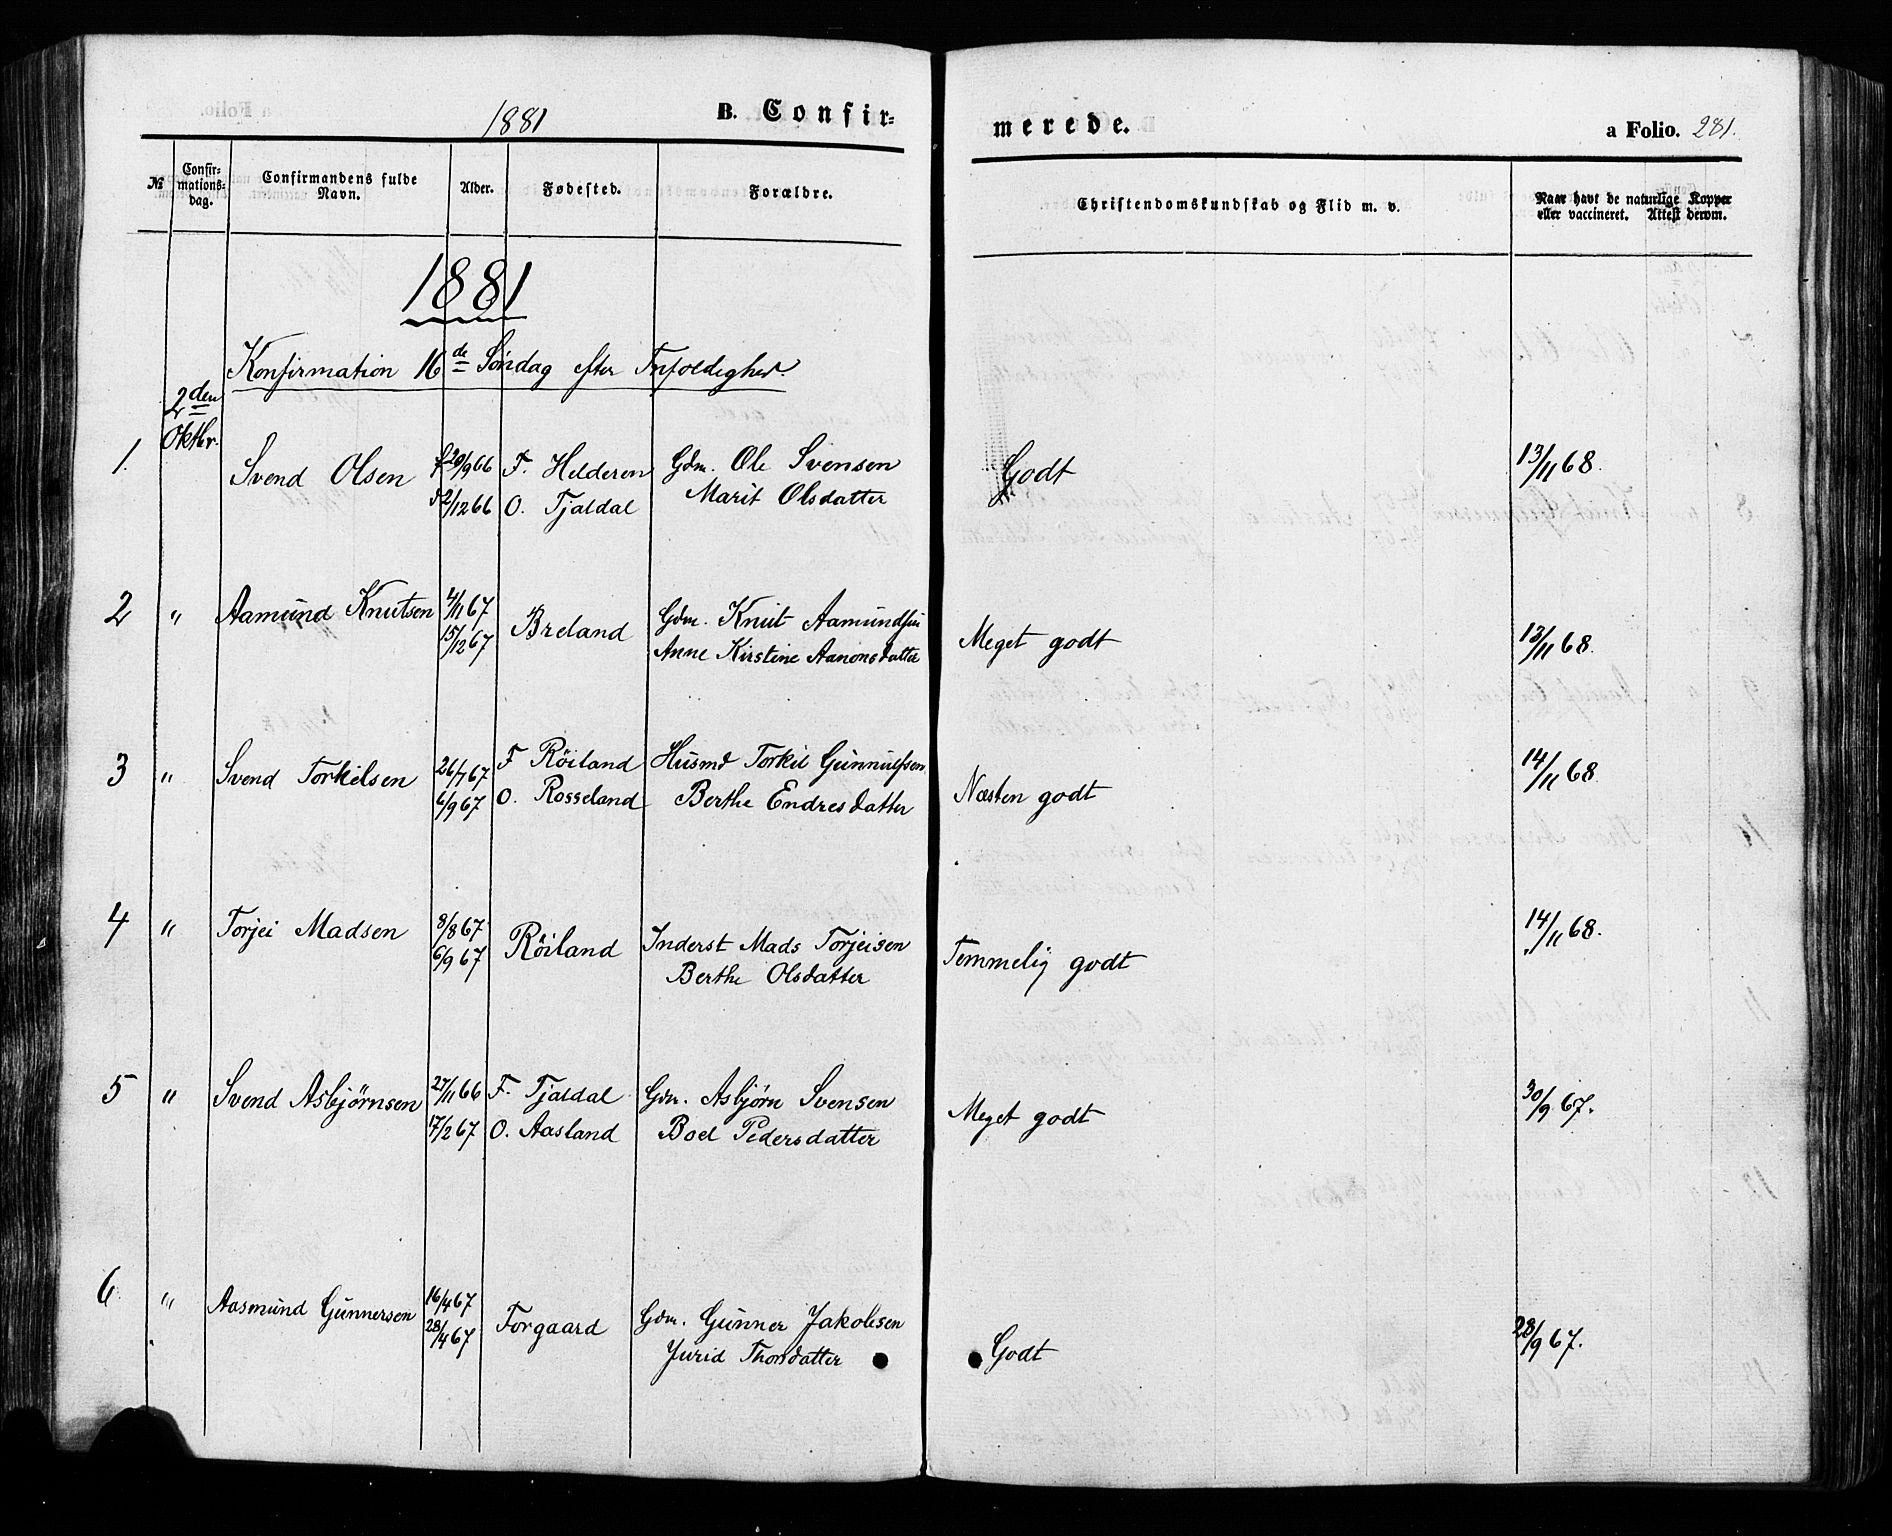 1881
B. Confir-
merede.
a Folio. 281.
№
Confir-
mations-
dag.
Confirmandens fulde
Navn.
Alder.
Fødested.
Forældre.
Christendomskundskab og Flid m. v.
Naar havt de naturlige Kopper
eller vaccineret. Attest derom.
1881
Konfirmation 16de Søndag efter Trefoldighed.
2den
Oktbr.
1. Svend Olsen f 20/9 66 F. Helderen Gdm. Ole Svensen Godt 13/11 68.
d 2/12 66 O. Tjaldal Marit Olsdatter
2 " Aamund Knutsen 4/11 67 Breland Gdm. Knut Aamundsen Meget godt 13/11 68.
15/12 67 Anne Kirstine Aanonsdatter
3 " Svend Torkelsen 26/7 67 F Röiland Husmd Torkil Gunnulfsen Næsten godt 14/11 68
6/9 67 O. Rosseland Berthe Endresdatter
4 " Torjei Madsen 8/8 67 Röiland Inderst Mads Torjeisen Temmelig godt 14/11 68.
6/9 67 Berthe Olsdatter
5 " Svend Asbjørnsen 27/11 66 F. Tjaldal Gdm. Asbjørn Svensen Meget godt 30/9 67.
17/2 67 O. Aasland Boel Pedersdatter
6 " Aasmund Gunnersen 16/4 67 Torgaard Gdm. Gunner Jakobsen Godt 28/9 67.
28/4 67 Jurid Thorsdatter